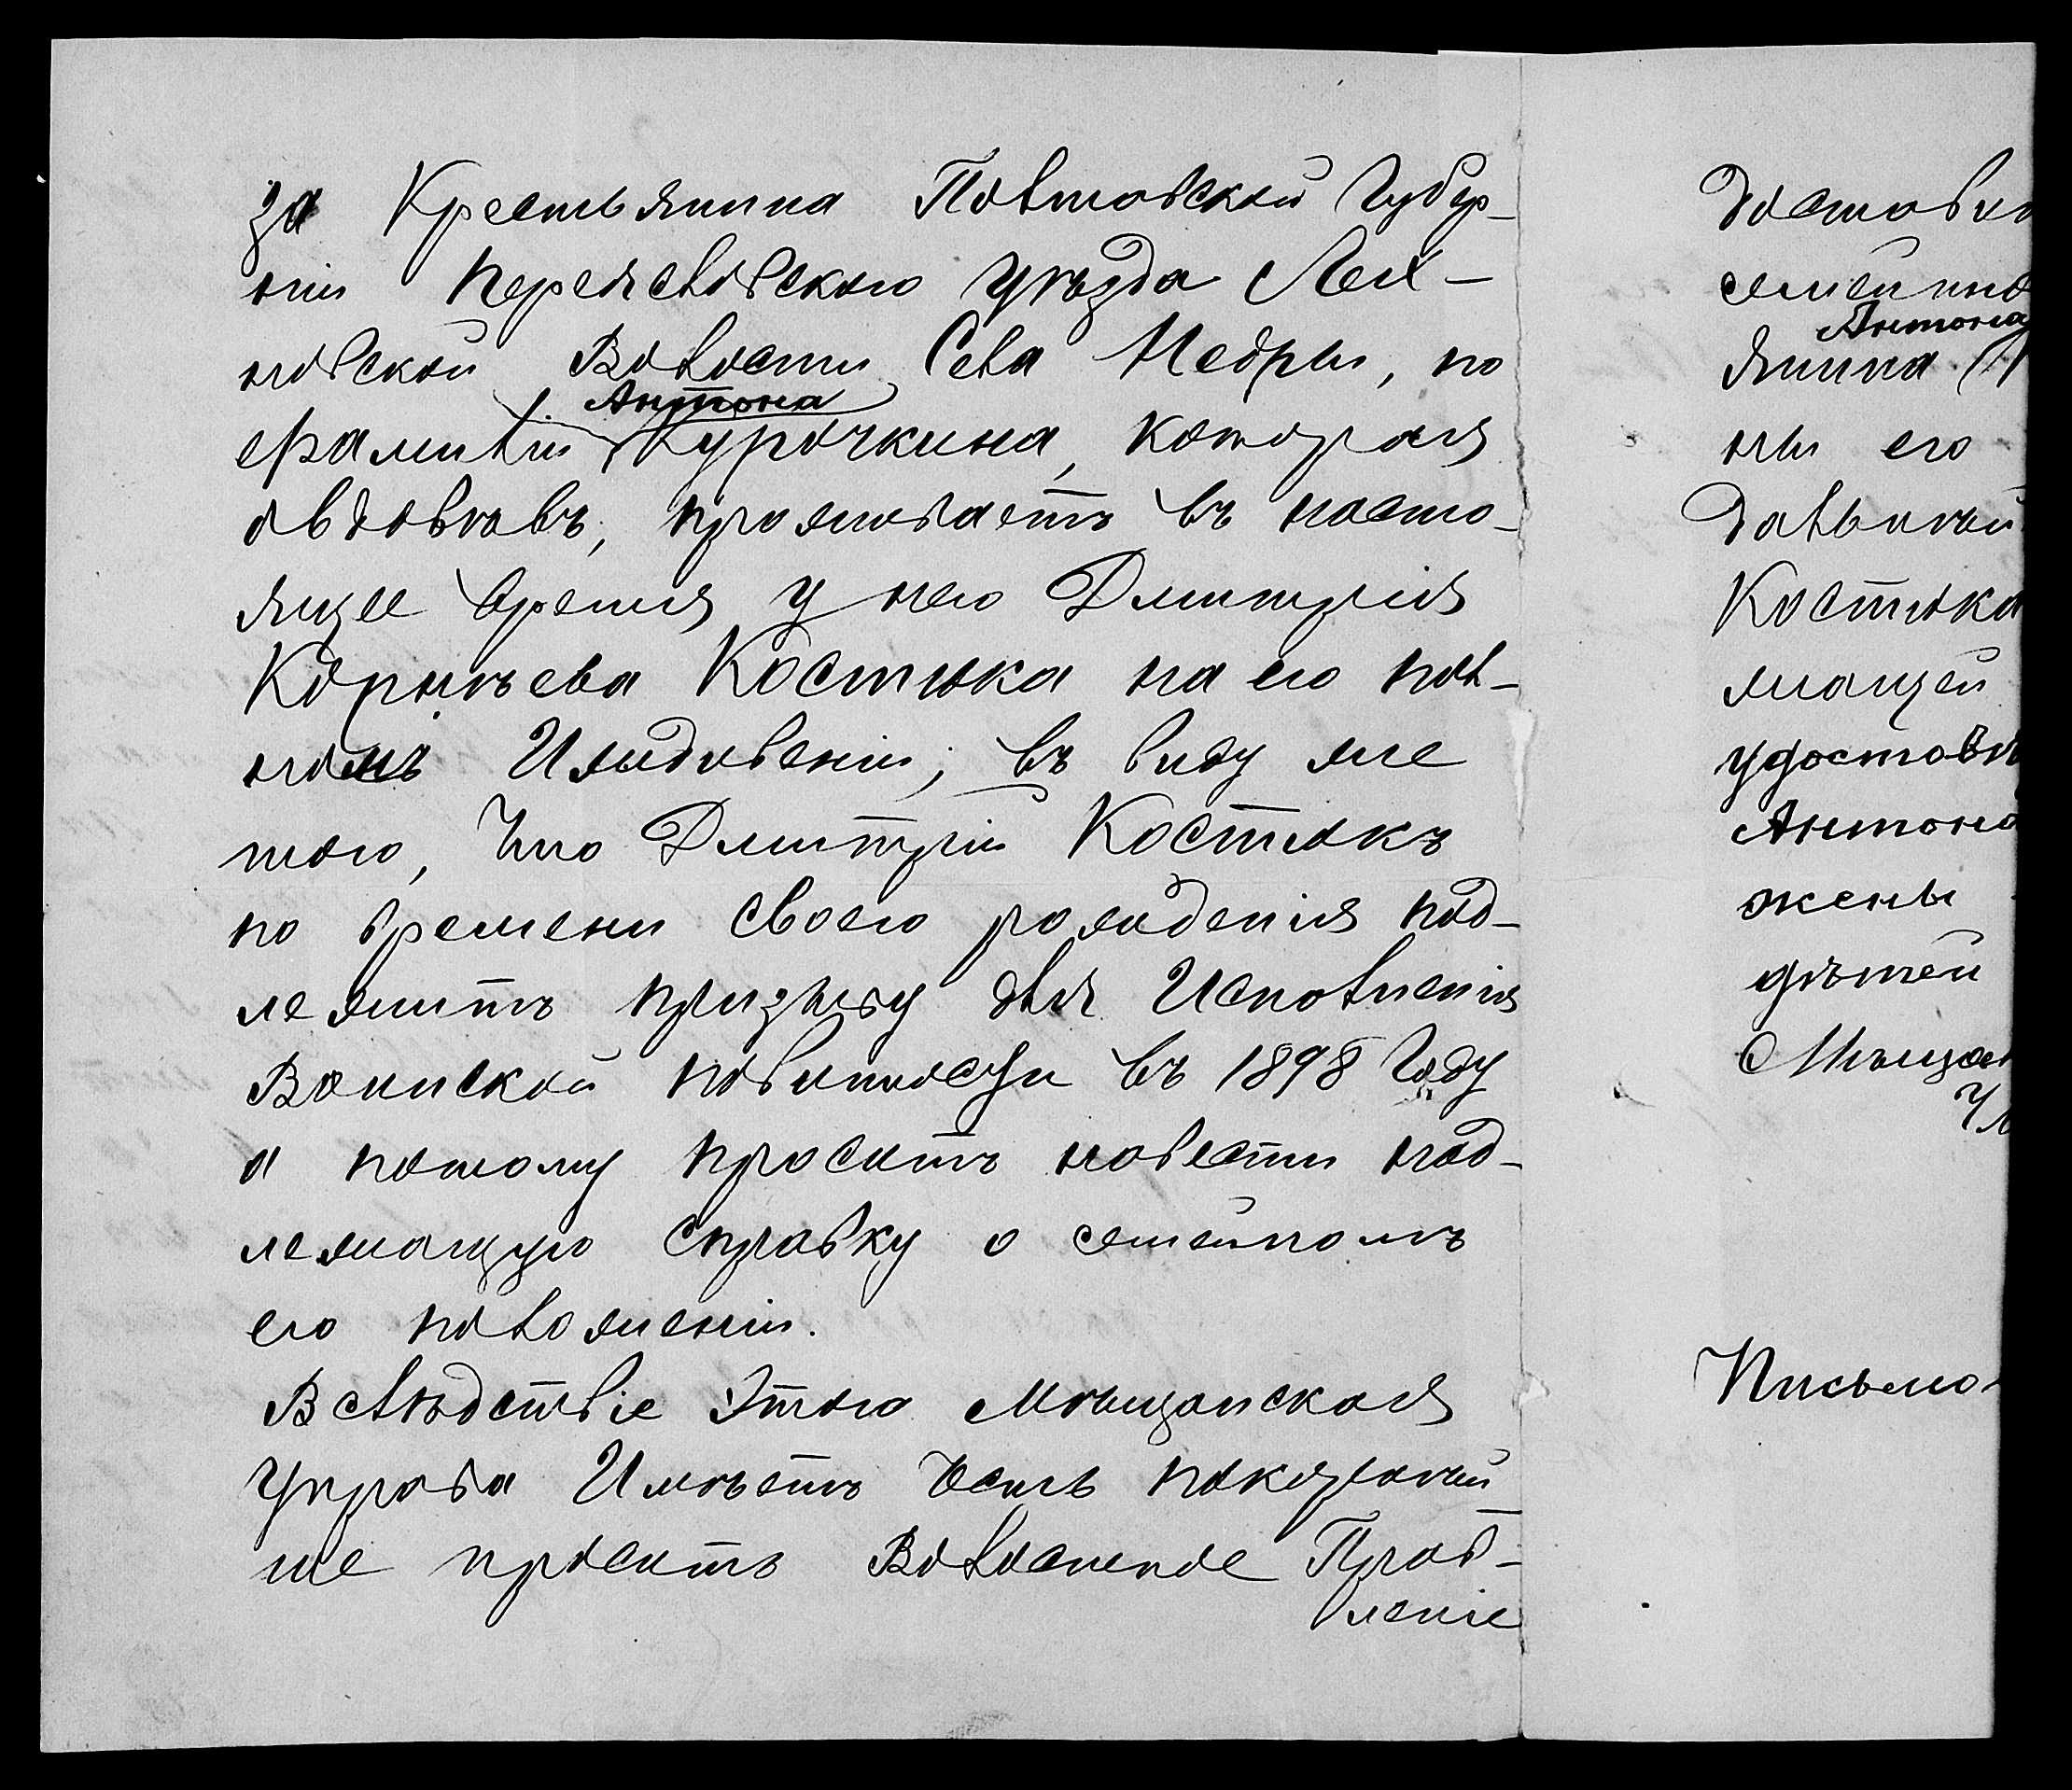 за Крестьянина Полтовской Губер-
нiи Переяславского Уѣзда Лех-
новской Волости Села Недры, по
Антона
фамилiи Курочкина, которая
овдовѣвъ, проживаетъ въ насто-
ящее время у него Дмитрiя
Корнѣева Костюка на его пол-
номъ Иждивенiи; въ виду же
того, Что Дмитрiй Костюкъ
по времени своего рождения под-
лежитъ призыву для Исполнения
Воинской повинности въ 1898 Году
а потому проситъ навести над-
лежащую справку о семейномъ
его положенiи.
Вслѣдствiе Этого Мѣщанская
Управа Имѣетъ Честь покорнѣй
ше просить Волостное Прав-
ленiе
Доставит
семейно
Антона
янина
ны его
Дальнѣй
Костюка
жащей
удостов
Антона
жены
дѣтей
Мѣщан
Уп
Письмо-